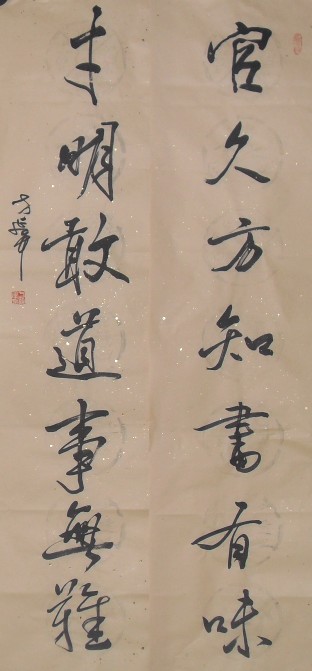 官久方知書有味
才明敢道事無難